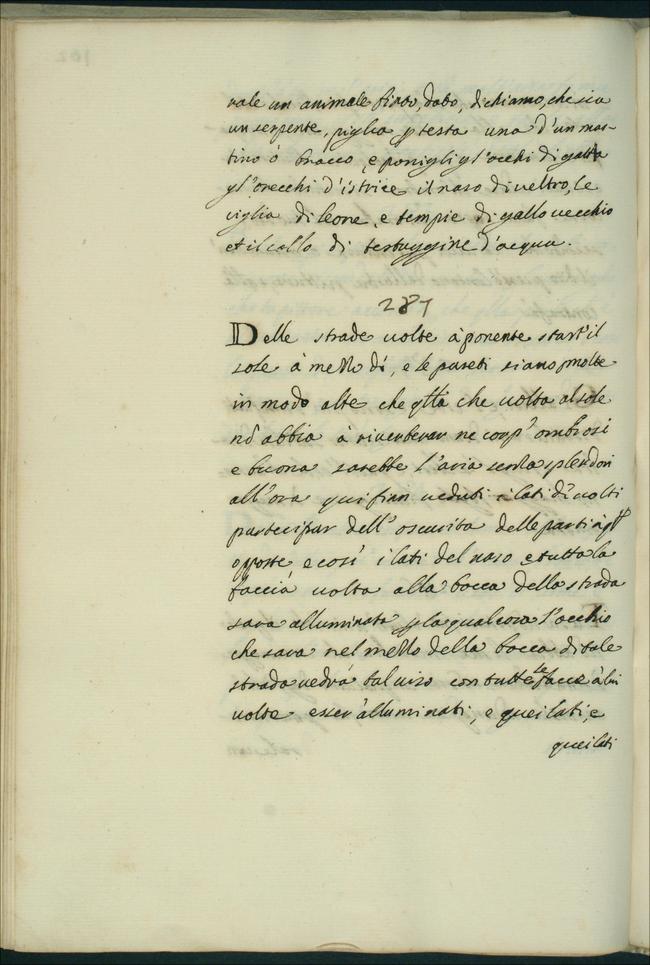 rale un animale finto, dato, dichiamo, che sia
un serpente, piglia p testa una d'un mas-
tino ó bracco, e ponigli p l'occhi di gatta
p l'orecchi d'istrice il naso di veltro, le
ciglia di leone, e tempie di gallo vecchio
et il collo di testuggine d'acqua.
287
Delle strade uolte à ponente start' il
sole à mezzo dí, e le pareti siano p molte
in modo alte che qlla che uolta al sole
nō abbia à riverberar ne corp' ombrosi
e buona sarebbe l'aria senza splendori
all'ora qui fian ueduti i lati d' uolti
participar dell' oscurita delle parti à
opposte, e cosí i lati del naso e tutta la
faccia uolta alla bocca della strada
sara alluminata p la qual cosa l'occhio
che sara nel mezzo della bocca di tale
strada uedrà tal uiso con tutte le facce à lui
uolte esser' alluminati, e quei lati, e
quei lati